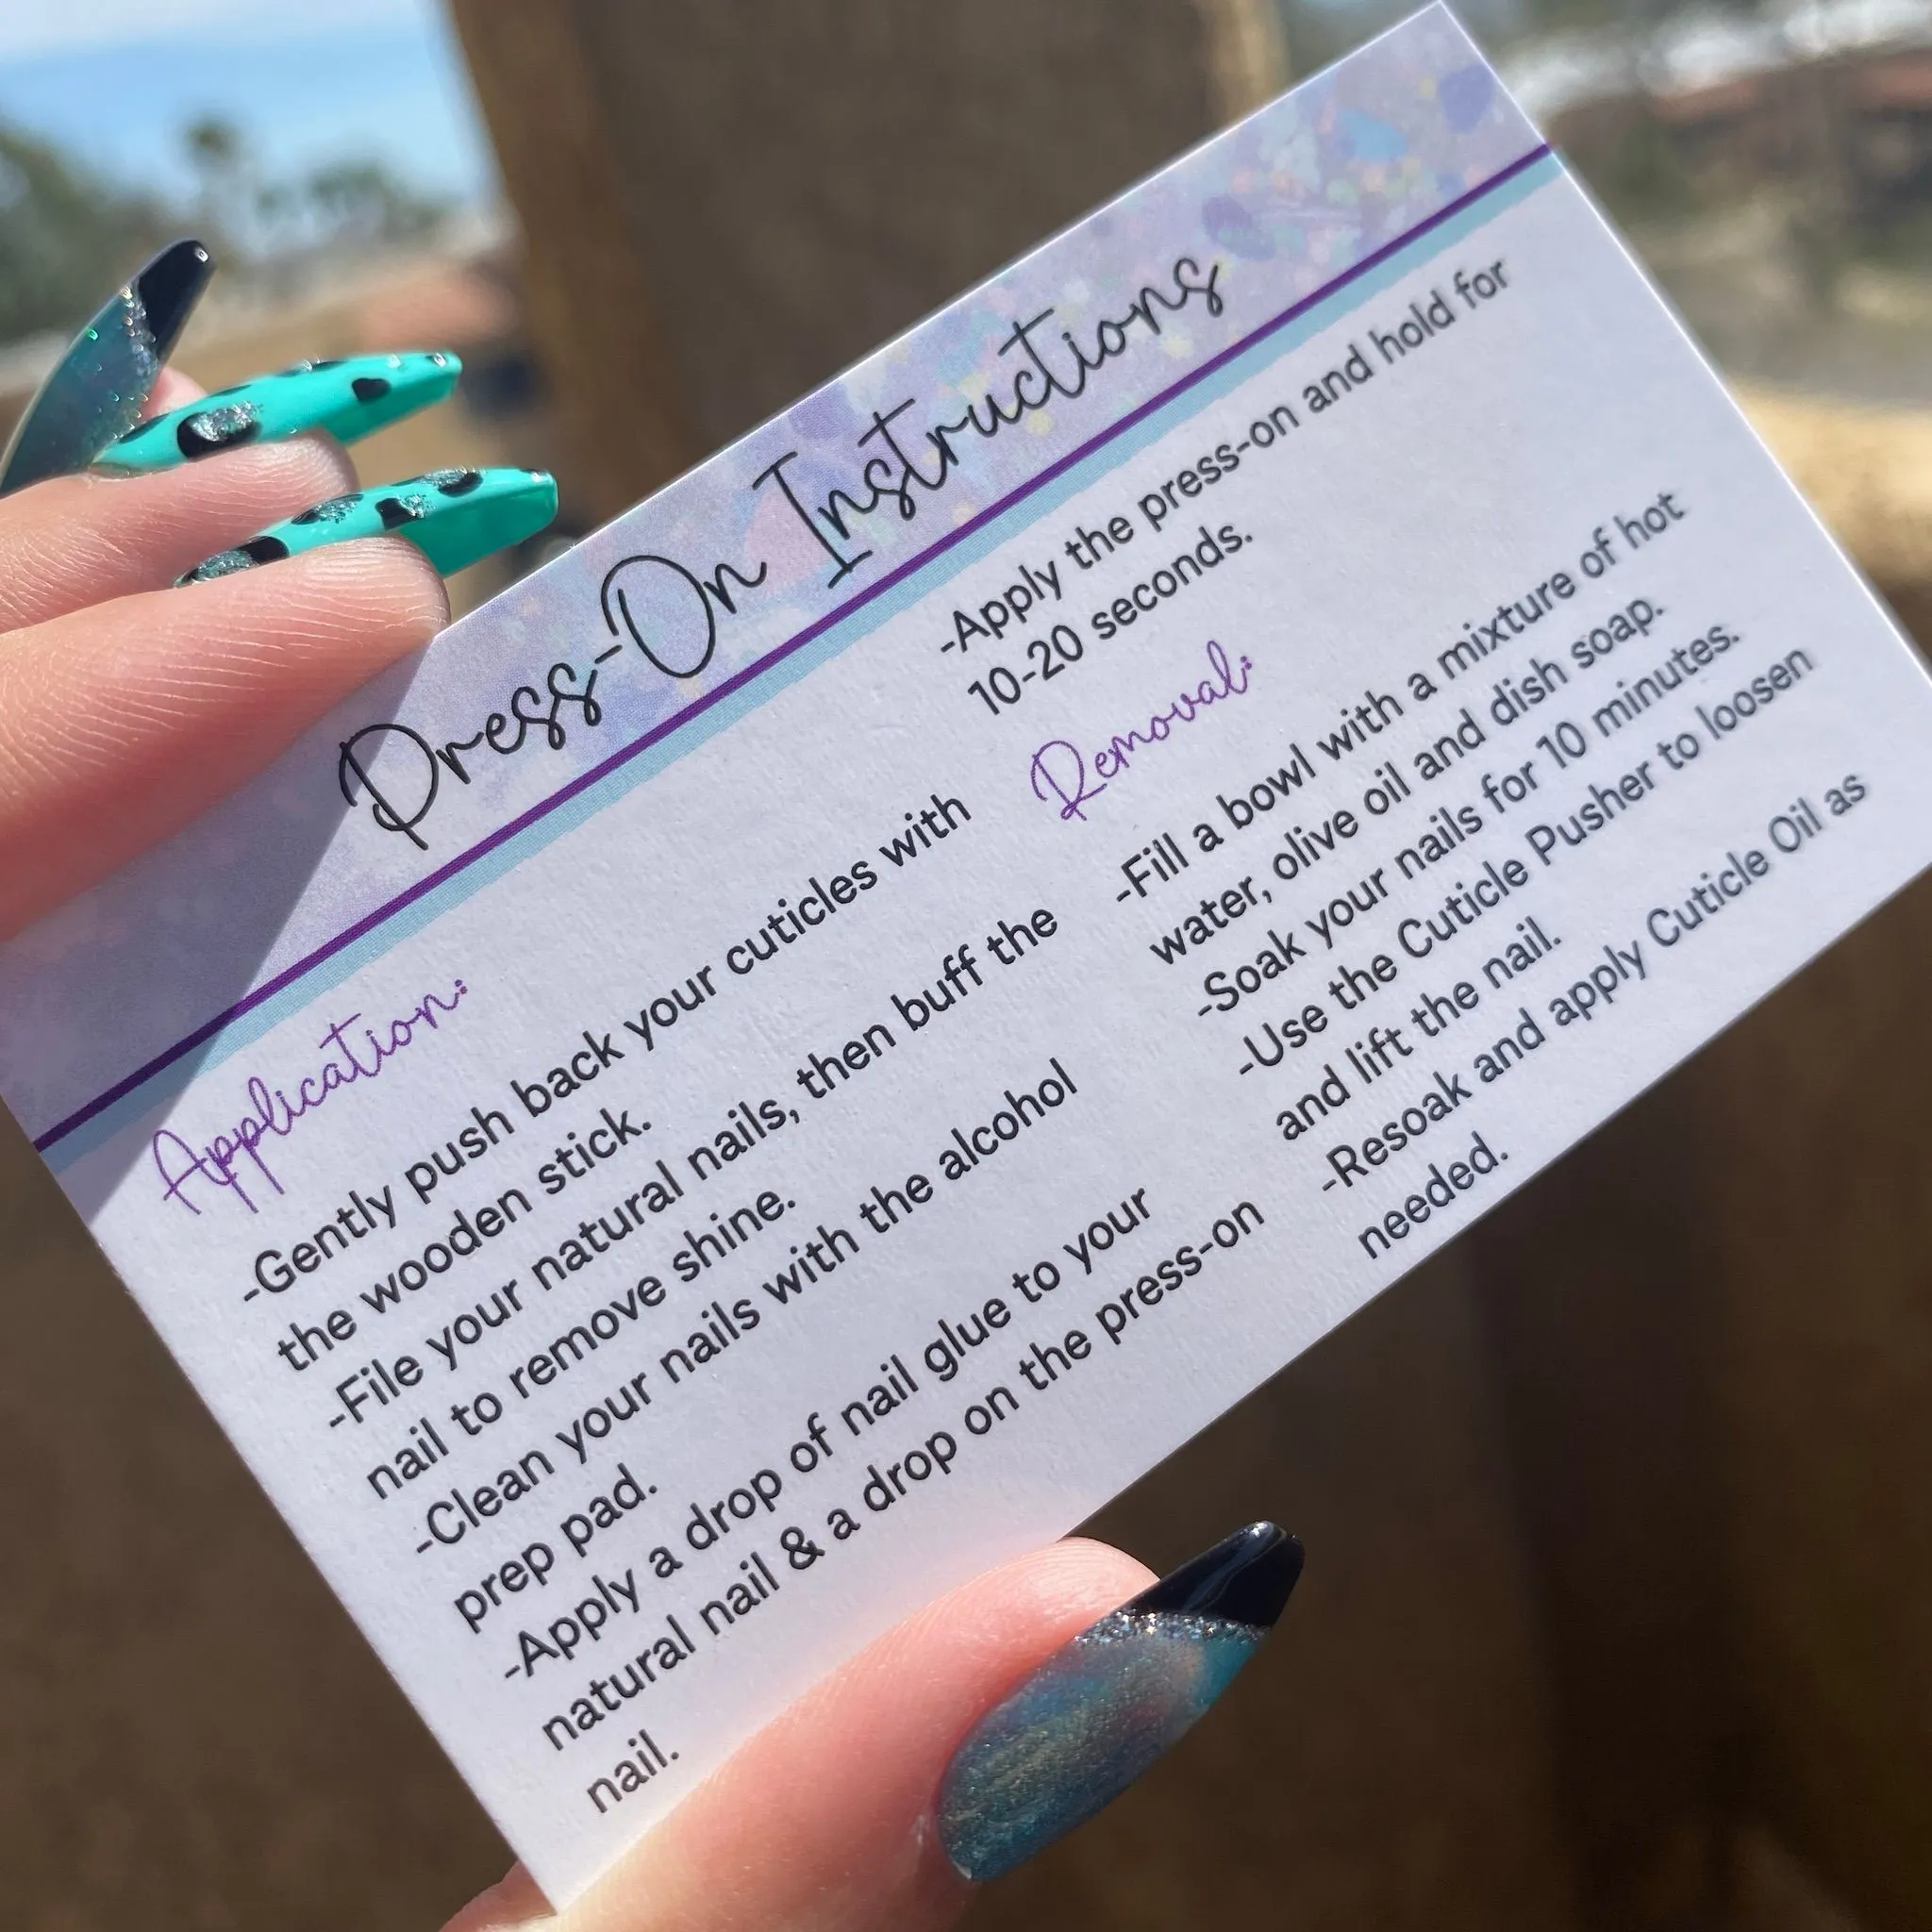 Press-On Instructions
Application:
-Gently push back your cuticles with
the wooden stick.
-File your natural nails, then buff the
nail to remove shine.
-Clean your nails with the alcohol
prep pad.
-Apply a drop of nail glue to your
natural nail & a drop on the press-on
nail.
-Apply the press-on and hold for
10-20 seconds.
Removal:
-Fill a bowl with a mixture of hot
water, olive oil and dish soap.
-Soak your nails for 10 minutes.
-Use the Cuticle Pusher to loosen
and lift the nail.
-Resoak and apply Cuticle Oil as
needed.